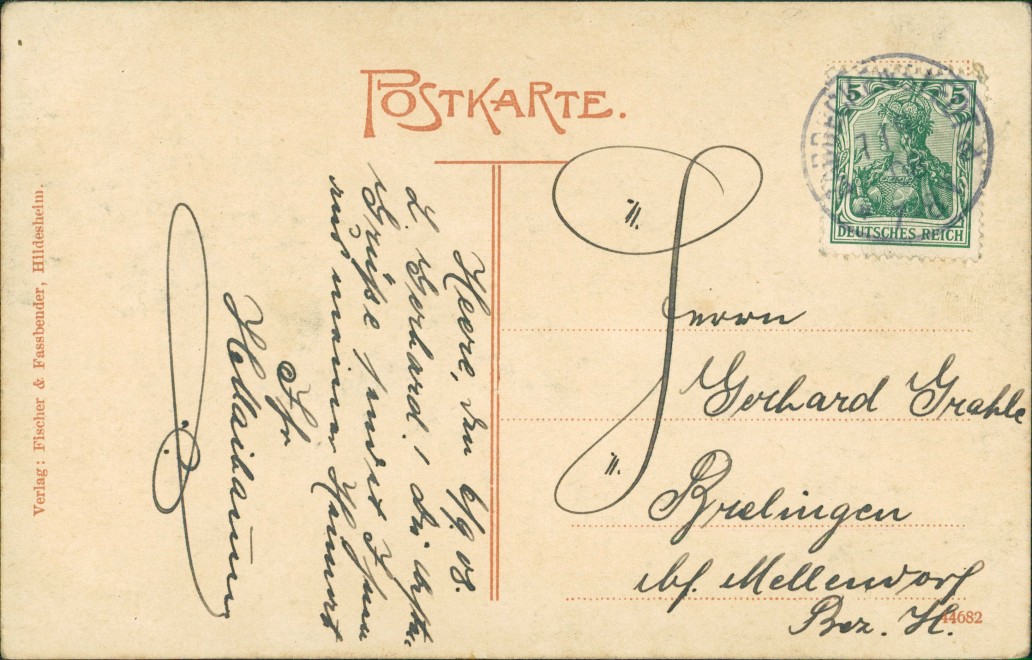 POSTKARTE.
5 5
DEUTSCHES REICH
Herrn
Gerhard Grahle
Brelingen
bf. Mellendorf
Bez. H.
44682
Heere, den 6/9 08.
L. Gerhard! Die besten
Grüße sendet Ihnen
aus meiner Heimat
Ihr
H. 
Verlag: Fischer & Fassbender, Hildesheim.